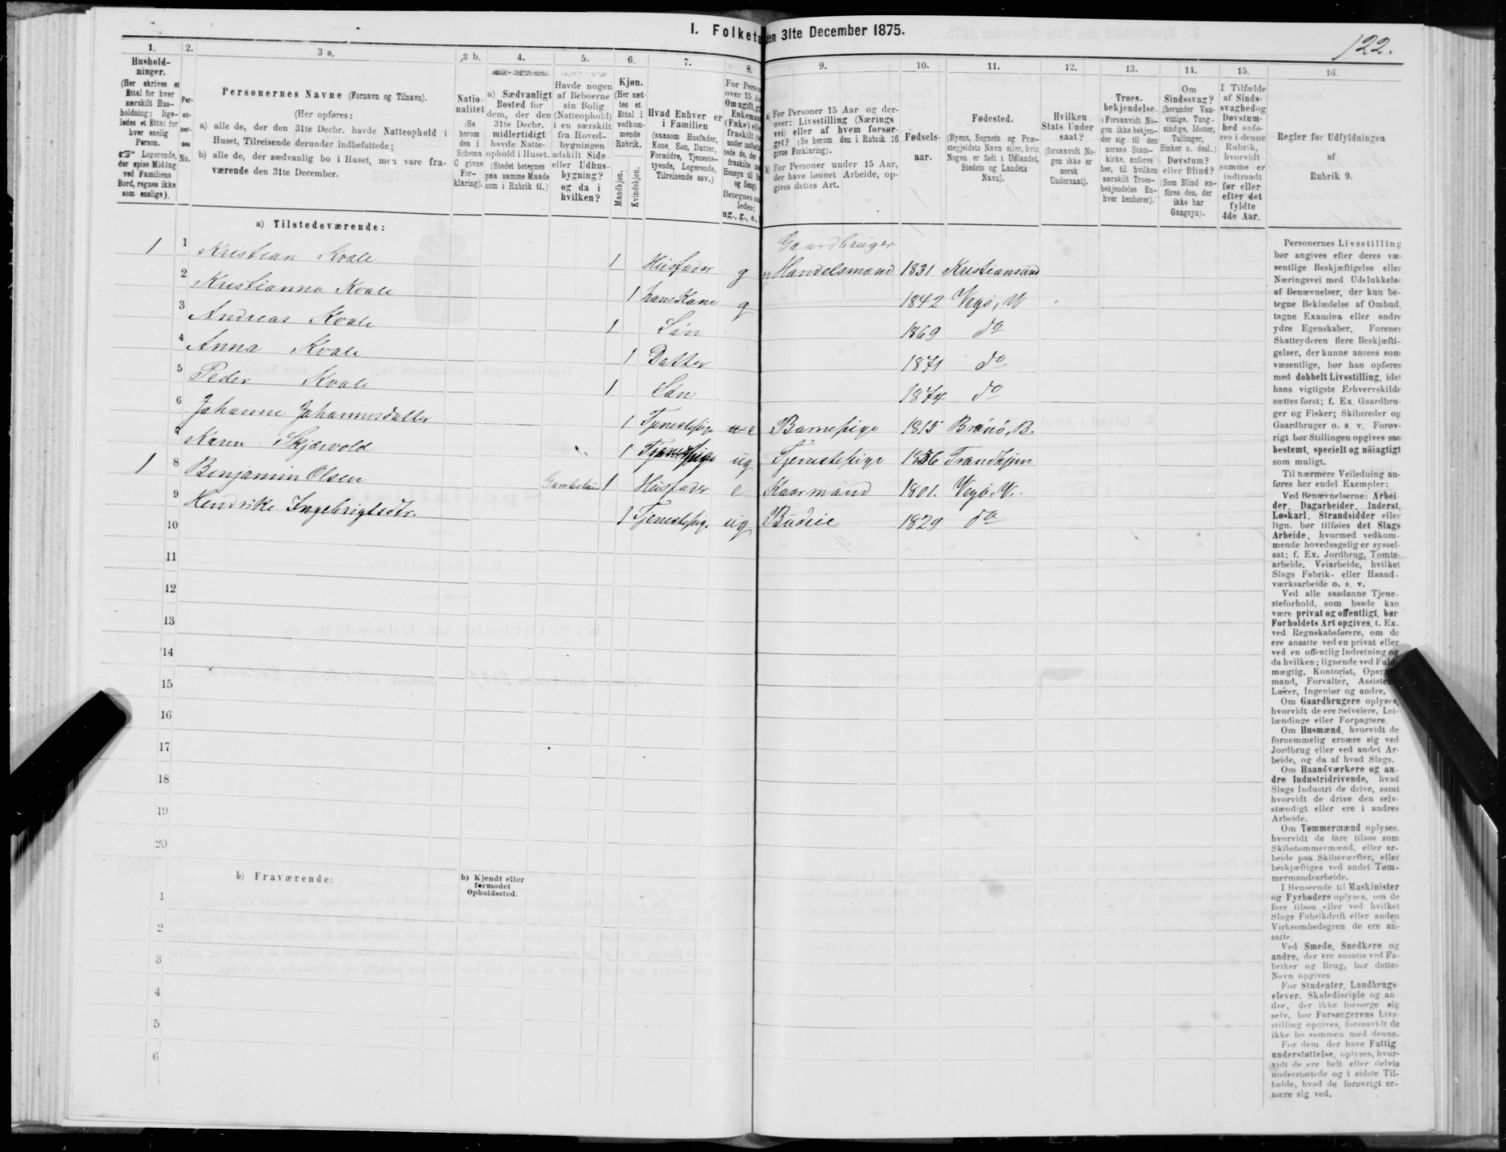 I. Folketa
en 31te December 1875.
122.
1.
Hushold-
ninger.
(Her skrives et
Ettal for hver
særskilt Hus-
holdning; lige-
ledes et Ettal for
hver enslig
Person.
Logerende,
der spise Middag
ved Familiens
Bord, regnes ikke
som enslige).
2.
Per-
so-
ner-
nes
No.
3 a.
Personernes Navne (Fornavn og Tilnavn).
(Her opføres:
a) alle de, der den 31te Decbr. havde Natteophold i
Huset, Tilreisende derunder indbefattede;
b) alle de, der sædvanlig bo i Huset, men vare fra-
værende den 31te December.
3 b.
Natio-
nalitet
(Se
herom
den i
Schema
C givne
For-
klaring).
4.
a) Sædvanligt
Bosted for
dem, der den
31te Decbr.
midlertidigt
havde Natte-
ophold i Huset.
(Stedet betegnes
paa samme Maade
som i Rubrik 11.)
5.
Havde nogen
af Beboerne
sin Bolig
(Natteophold)
i en særskilt
fra Hoved-
bygningen
adskilt Side-
eller Udhus-
bygning?
og da i
hvilken?
6.
Kjøn.
(Her sæt-
tes et
Ettal i
vedkom-
mende
Rubrik.
Mandkjøn.
Kvindekjøn.
7.
Hvad Enhver er
i Familien
(saasom Husfader,
Kone, Søn, Datter,
Forældre, Tjeneste-
tyende, Logerende,
Tilreisende osv.)
8.
9.
For Personer 15 Aar og der-
over: Livsstilling (Nærings
vei) eller af hvem forsør-
get? (Se herom den i Rubrik 16
givne Forklaring).
b) For Personer under 15 Aar,
der have lønnet Arbeide, op-
gives dettes Art.
10.
Fødsels-
aar.
11.
Fødested.
(Byens, Sognets og Præ-
stegjeldets Navn eller, hvis
Nogen er født i Udlandet,
Stedets og Landets
Navn).
12.
Hvilken
Stats Under
saat?
(forsaavidt No-
gen ikke er
norsk
Undersaat).
13.
Troes-
bekjendelse.
(Forsaavidt No-
gen ikke bekjen-
der sig til den
norske Stats-
kirke, anføres
her, til hvilken
særskilt Troes-
bekjendelse En-
hver henhører).
14.
Om
Sindssvag?
(herunder Van-
vittige, Tung-
sindige, Idioter,
Tullinger,
Sinker o. desl.)
Døvstum?
eller Blind?
(Som Blind an-
føres den, der
ikke har
Gangsyn).
15.
I Tilfælde
af Sinds-
svaghed og
Døvstum-
hed anfø-
res i denne
Rubrik,
hvorvidt
samme er
indtraadt
før eller
efter det
fyldte
4de Aar.
16.
Regler for Udfyldningen
af
Rubrik 9.
a) Tilstedeværende:
Gaardbruger
1 1 Kristian Kvale 1 Husfader g og Handelsmand 1831 Kristiansund
2 Kristianna Kvale 1 hans Kone g 1842 Vegø, V
3 Andreas Kvale 1 Søn 1869 do
4 Anna Kvale 1 Datter 1871 do
5 Peder Kvale 1 Søn 1874 do
6 Johanne Johannesdatter 1 Tjenestepige e Barnepige 1815 Brønø, B.
7 Karen Skjærvold 1 Tjenestepige ug Tjenestepige 1836 Trondhjem
1 8 Benjamin Olsen 1 Husfader e Kaarmand 1801. Vegø, V.
9 Hendrike Ingebrigtsdtr 1 Tjenestepig. ug Budeie 1829 do
10
11
12
13
14
15
16
17
18
19
20
b) Fraværende:
b) Kjendt eller
formodet
Opholdssted.
1
2
3
4
5
6
Personernes Livsstilling
bør angives efter deres væ-
sentlige Beskjæftigelse eller
Næringsvei med Udelukkelse
af Benævnelser, der kun be-
tegne Beklædelse af Ombud,
tagne Examina eller andre
ydre Egenskaber. Forener
Skatteyderen flere Beskjæfti-
gelser, der kunne ansees som
væsentlige, bør han opføres
med dobbelt Livsstilling, idet
hans vigtigste Erhvervskilde
sættes først; f. Ex. Gaardbru-
ger og Fisker; Skibsreder og
Gaardbruger o. s. v. Forøv-
rigt bør Stillingen opgives saa
bestemt, specielt og nøiagtigt
som muligt.
Til nærmere Veiledning an-
føres her endel Exempler:
Ved Benævnelserne: Arbei-
der, Dagarbeider, Inderst,
Løskarl, Strandsidder eller
lign. bør tilføies det Slags
Arbeide, hvormed vedkom-
mende hovedsagelig er syssel-
sat; f. Ex. Jordbrug, Tomte-
arbeide, Veiarbeide, hvilket
Slags Fabrik- eller Haand-
værksarbeide o. s. v.
Ved alle saadanne Tjene-
steforhold, som baade kan
være privat og offentligt, bør
Forholdets Art opgives, t. Ex.
ved Regnskabsførere, om de
ere ansatte ved en privat eller
ved en offentlig Indretning og
da hvilken; lignende ved Fuld-
mægtig, Kontorist, Opsyns-
mand, Forvalter, Assistent,
Lærer, Ingeniør og andre.
Om Gaardbrugere oplyses,
hvorvidt de ere Selveiere, Lei-
lændinge eller Forpagtere.
Om Husmænd, hvorvidt de
fornemmelig ernære sig ved
Jordbrug eller ved andet Ar-
beide, og da af hvad Slags.
Om Haandværkere og an-
dre Industridrivende, hvad
Slags Industri de drive, samt
hvorvidt de drive den selv-
stændigt eller ere i andres
Arbeide.
Om Tømmermænd oplyses,
hvorvidt de fare tilsøs som
Skibstømmermænd, eller ar-
beide paa Skibsværfter, eller
beskjæftiges ved andet Tøm-
mermandsarbeide.
I Henseende til Maskinister
og Fyrbødere oplyses, om de
fare tilsøs eller ved hvilket
Slags Fabrikdrift eller anden
Virksomhedsgren de ere an-
satte.
Ved Smede, Snedkere og
andre, der ere ansatte ved Fa-
briker og Brug, bør dettes
Navn opgives
For Studenter, Landbrugs-
elever, Skoledisciple og an-
dre, der ikke forsørge sig
selv, bør Forsørgerens Livs-
stilling opgives, forsaavidt de
ikke bo sammen med denne.
For dem, der have Fattig
understøttelse, oplyses, hvor-
vidt de ere helt eller delvis
understøttede og i sidste Til-
fælde, hvad de forøvrigt er-
nære sig ved.